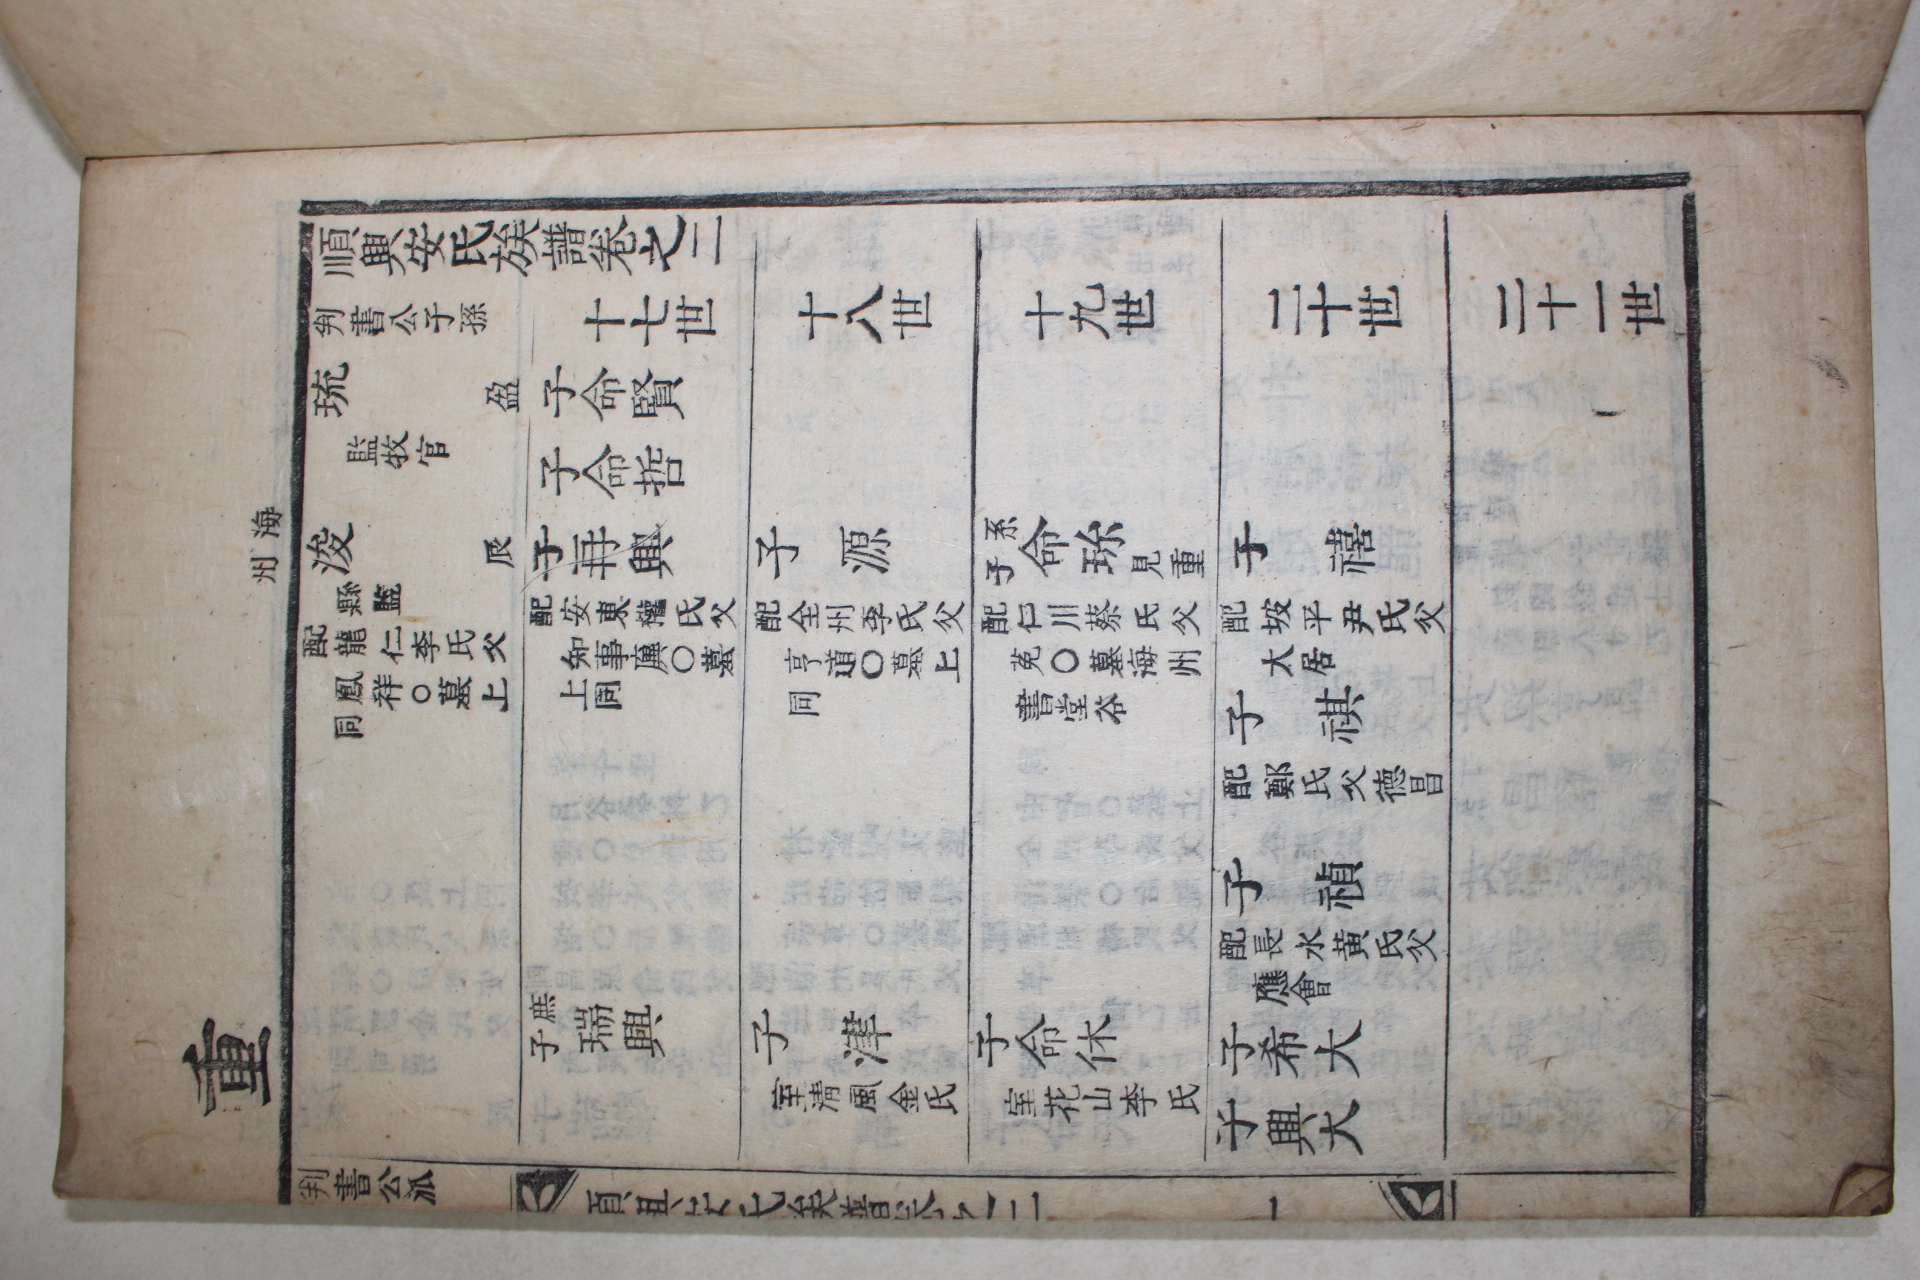 重
海州
順興安氏族譜卷之二
判書公子孫
琉
監牧官
盈
浚
縣監
辰
配龍仁李氏父
鳳祥○墓上
同
十七世
子命賢
子命哲
子再興
配安東權氏父
知事廙○墓
上同
庶子
瑞興
十八世
子源
配全州李氏父
亨道○墓上
同
子津
室清風金氏
十九世
系子
命珎見重
配仁川蔡氏父
莬○墓海州
書堂谷
子命休
室花山李氏
二十世
子禧
配坡平尹氏父
大居
子祺
配鄭氏父德昌
子禎
配長水黄氏父
應會
子希大
子興大
二十一世
判書公派
順興安氏族譜卷之二
一